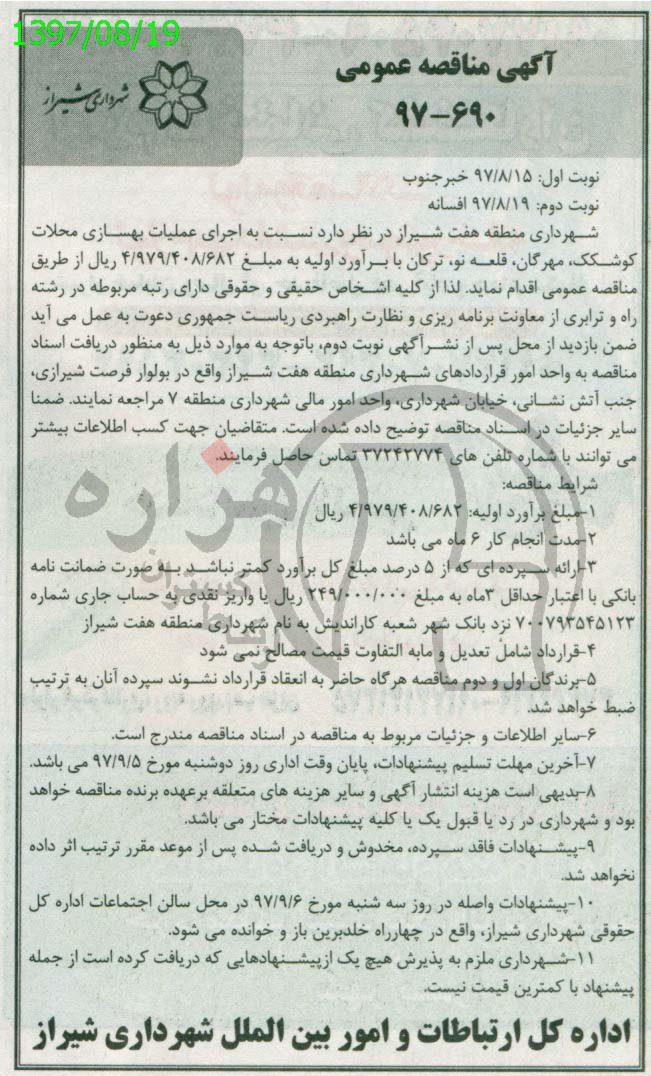 1397/08/19
آگهی مناقصه عمومی
۹۷-۶۹۰
شهرداری شیراز
نوبت اول: ۹۷/۸/۱۵ خبرجنوب
نوبت دوم: ۹۷/۸/۱۹ افسانه
شهرداری منطقه هفت شیراز در نظر دارد نسبت به اجرای عملیات بهسازی محلات
کوشکک، مهرگان، قلعه نو، ترکان با برآورد اولیه به مبلغ ۴/۹۷۹/۴۰۸/۶۸۲ ریال از طریق
مناقصه عمومی اقدام نماید. لذا از کلیه اشخاص حقیقی و حقوقی دارای رتبه مربوطه در رشته
راه و ترابری از معاونت برنامه ریزی و نظارت راهبردی ریاست جمهوری دعوت به عمل می آید
ضمن بازدید از محل پس از نشرآگهی نوبت دوم، باتوجه به موارد ذیل به منظور دریافت اسناد
مناقصه به واحد امور قراردادهای شهرداری منطقه هفت شیراز واقع در بولوار فرصت شیرازی،
جنب آتش نشانی، خیابان شهرداری، واحد امور مالی شهرداری منطقه ۷ مراجعه نمایند. ضمنا
سایر جزئیات در اسناد مناقصه توضیح داده شده است. متقاضیان جهت کسب اطلاعات بیشتر
می توانند با شماره تلفن های ۳۷۲۴۲۷۷۴ تماس حاصل فرمایند.
شرایط مناقصه:
۱-مبلغ برآورد اولیه: ۴/۹۷۹/۴۰۸/۶۸۲ ریال
۲-مدت انجام کار ۶ ماه می باشد
۳-ارائه سپرده ای که از ۵ درصد مبلغ کل برآورد کمتر نباشد به صورت ضمانت نامه
بانکی با اعتبار حداقل ۳ماه به مبلغ ۲۴۹/۰۰۰/۰۰۰ ریال یا واریز نقدی به حساب جاری شماره
۷۰۰۷۹۳۵۴۵۱۲۳ نزد بانک شهر شعبه کاراندیش به نام شهرداری منطقه هفت شیراز
۴-قرارداد شامل تعدیل و مابه التفاوت قیمت مصالح نمی شود
۵-برندگان اول و دوم مناقصه هرگاه حاضر به انعقاد قرارداد نشوند سپرده آنان به ترتیب
ضبط خواهد شد.
۶-سایر اطلاعات و جزئیات مربوط به مناقصه در اسناد مناقصه مندرج است.
۷-آخرین مهلت تسلیم پیشنهادات، پایان وقت اداری روز دوشنبه مورخ ۹۷/۹/۵ می باشد.
۸-بدیهی است هزینه انتشار آگهی و سایر هزینه های متعلقه برعهده برنده مناقصه خواهد
بود و شهرداری در رد یا قبول یک یا کلیه پیشنهادات مختار می باشد.
۹-پیشنهادات فاقد سپرده، مخدوش و دریافت شده پس از موعد مقرر ترتیب اثر داده
نخواهد شد.
۱۰-پیشنهادات واصله در روز سه شنبه مورخ ۹۷/۹/۶ در محل سالن اجتماعات اداره کل
حقوقی شهرداری شیراز، واقع در چهارراه خلدبرین باز و خوانده می شود.
۱۱-شهرداری ملزم به پذیرش هیچ یک ازپیشنهادهایی که دریافت کرده است از جمله
پیشنهاد با کمترین قیمت نیست.
اداره کل ارتباطات و امور بین الملل شهرداری شیراز
هزاره